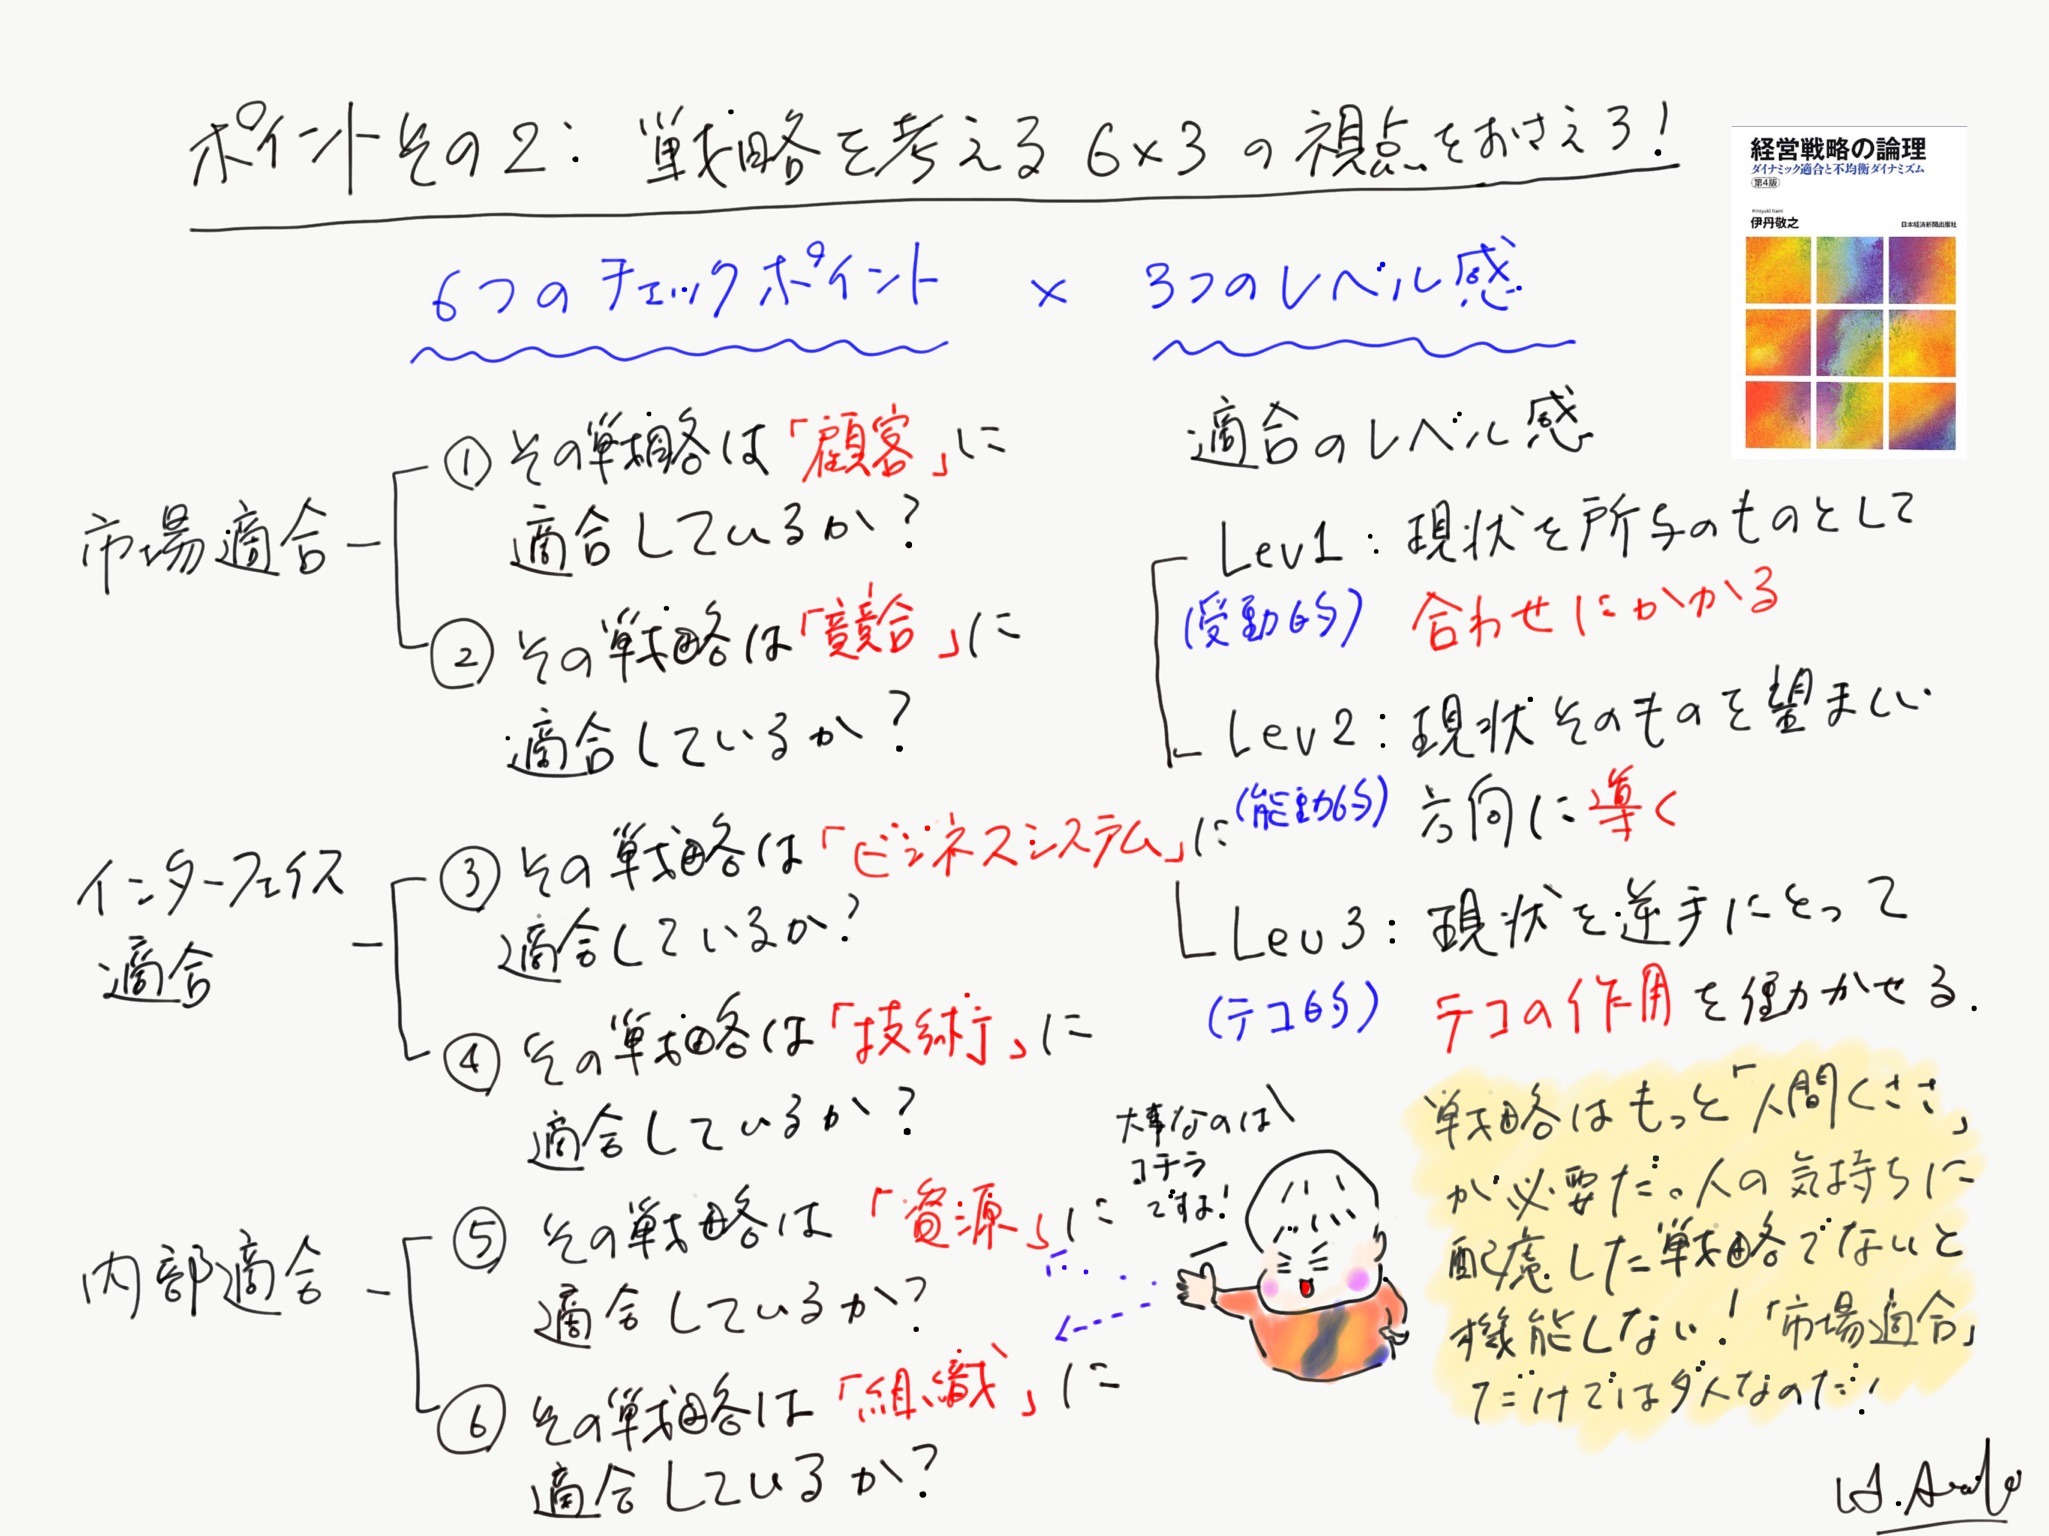 ポイントその2: 戦略を考える 6×3 の視点をおさえろ!
経営戦略の論理
ダイナミック適合と不均衡ダイナミズム
第4版
Hiroyuki Itami
伊丹敬之
日本経済新聞出版社
6つのチェックポイント × 3つのレベル感
市場適合
① その戦略は「顧客」に
適合しているか?
② その戦略は「競合」に
適合しているか?
インターフェイス
適合
③ その戦略は「ビジネスシステム」に
適合しているか?
④ その戦略は「技術」に
適合しているか?
内部適合
⑤ その戦略は「資源」に
適合しているか?
⑥ その戦略は「組織」に
適合しているか?
適合のレベル感
Lev1: 現状を所与のものとして
(受動的) 合わせにかかる
Lev2: 現状そのものを望ましい
(能動的) 方向に導く
Lev3: 現状を逆手にとって
(テコ的) テコの作用を働かせる.
大事なのは
コチラ
ですよ!
戦略はもっと「人間くささ」
が必要だ。人の気持ちに
配慮した戦略でないと
機能しない!「市場適合」
だけではダメなのだ!